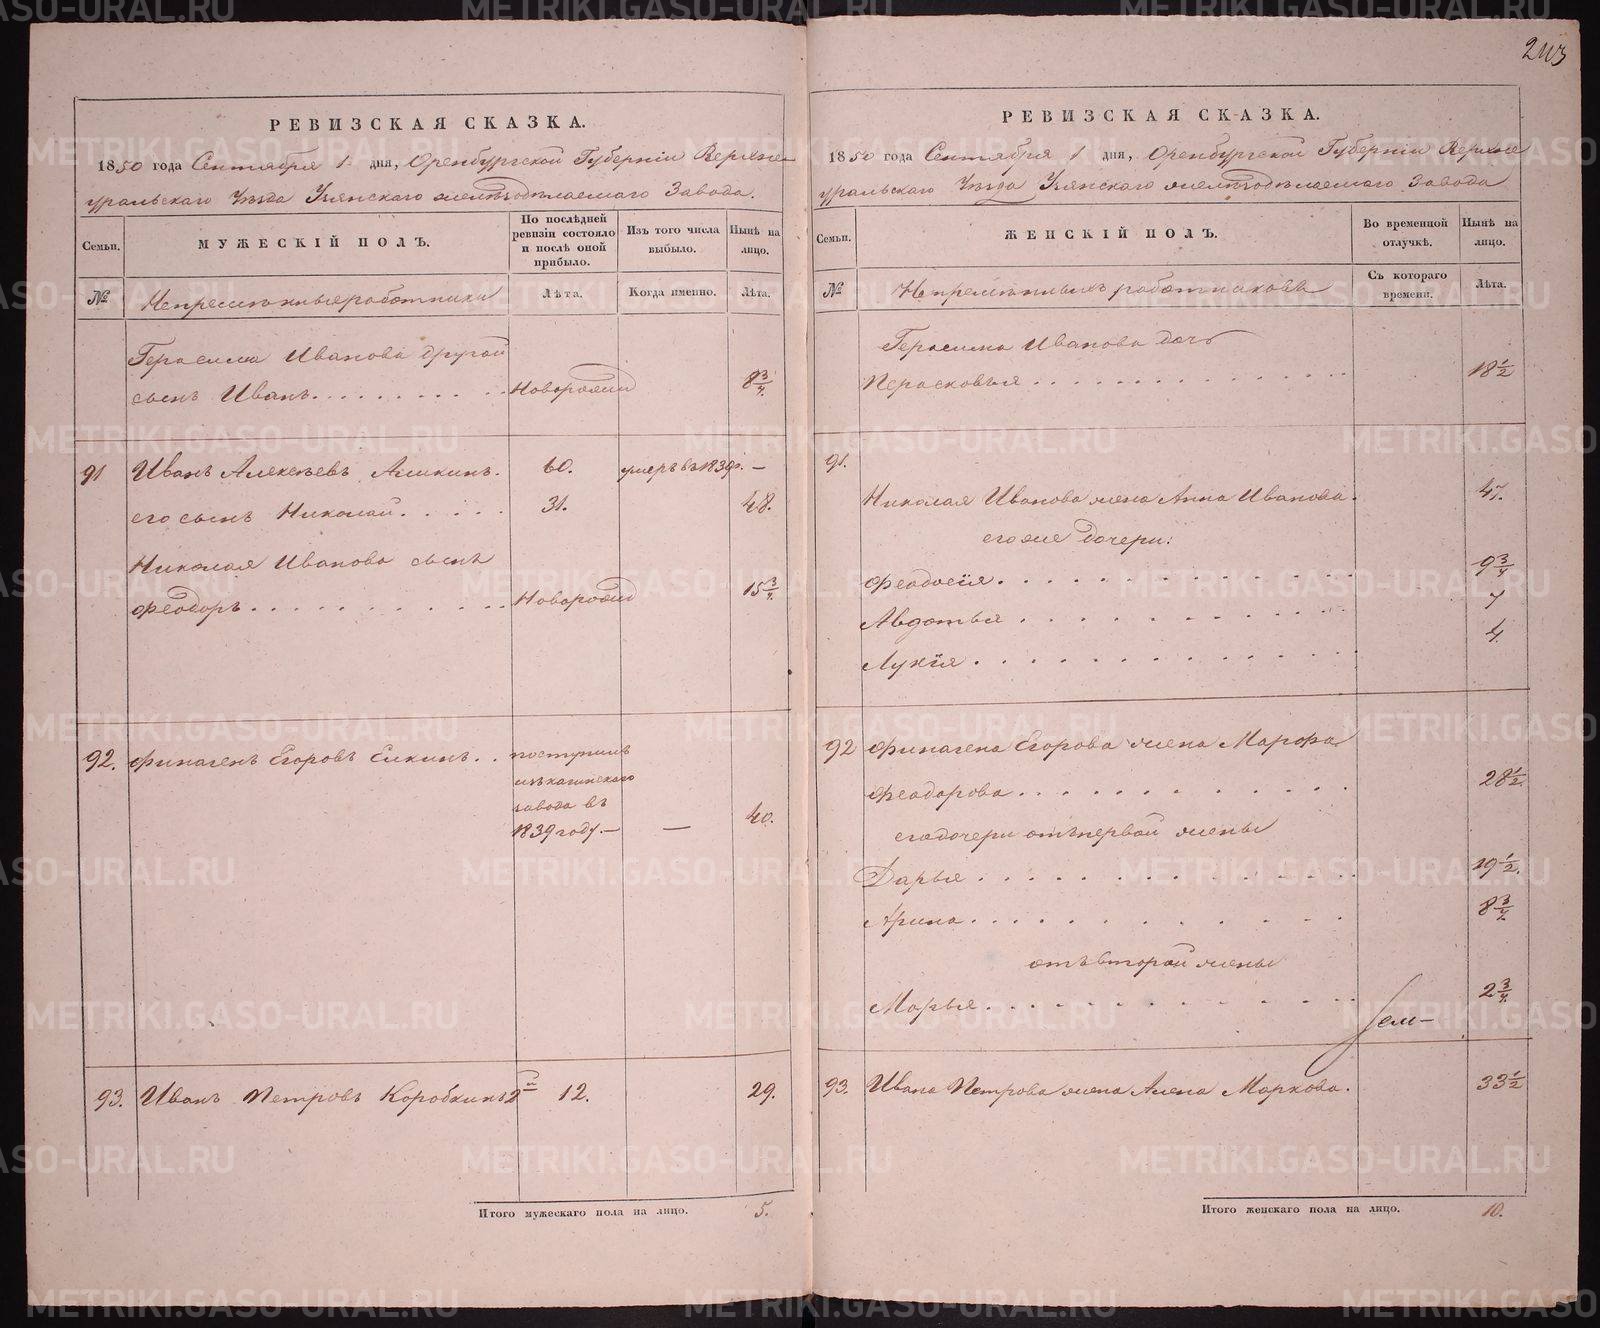 243
РЕВИЗСКАЯ СКАЗКА.
1850 года Сентября 1 дня, Оренбургской Губерніи Верхне-
уральскаго Уѣзда Узянскаго желѣзодѣлаемаго Завода.
Семьи.
МУЖЕСКІЙ ПОЛЪ.
По послѣдней
ревизіи состояло
и послѣ оной
прибыло.
Изъ того числа
выбыло.
Нынѣ на
лицо.
№
Непремѣнные работники
Лѣта.
Когда именно.
Лѣта.
Герасима Иванова другой
сынъ Иванъ. Новорожд 8 3/4.
91 Иванъ Алексѣевъ 60. умеръ въ 1839г. —
его сынъ Николай. 31. 48.
Николая Иванова сынъ
Феодоръ. Новорожд 15 3/4.
92. Финагенъ Егоровъ Елкинъ. поступилъ
изъ Кагинскаго
завода въ
1839 году. — — 40.
93. Иванъ Петровъ Коробкинъ 2й 12. 29.
Итого мужескаго пола на лицо. 5.
РЕВИЗСКАЯ СКАЗКА.
1850 года Сентября 1 дня, Оренбургской Губерніи Верхне
уральскаго Уѣзда Узянскаго желѣзодѣлаемаго Завода
Семьи.
ЖЕНСКІЙ ПОЛЪ.
Во временной
отлучкѣ.
Нынѣ на
лицо.
№
Непремѣнныхъ работниковъ
Съ котораго
времени.
Лѣта.
Герасима Иванова дочь
Парасковья 18 1/2
91.
Николая Иванова жена Анна Иванова. 47.
его же дочери:
Феодосія. 9 3/4
Авдотья 7
Лукія. 4.
92 Финагена Егорова жена Марфа
Феодорова 28 1/2.
его дочери отъ первой жены
Дарья 19 1/2.
Арина 8 3/4
отъ второй жены
Марья 2 3/4.
Сем—
93. Ивана Петрова жена Алена Маркова. 33 1/2
Итого женскаго пола на лицо. 10.
METRIKI.GASO-URAL.RU